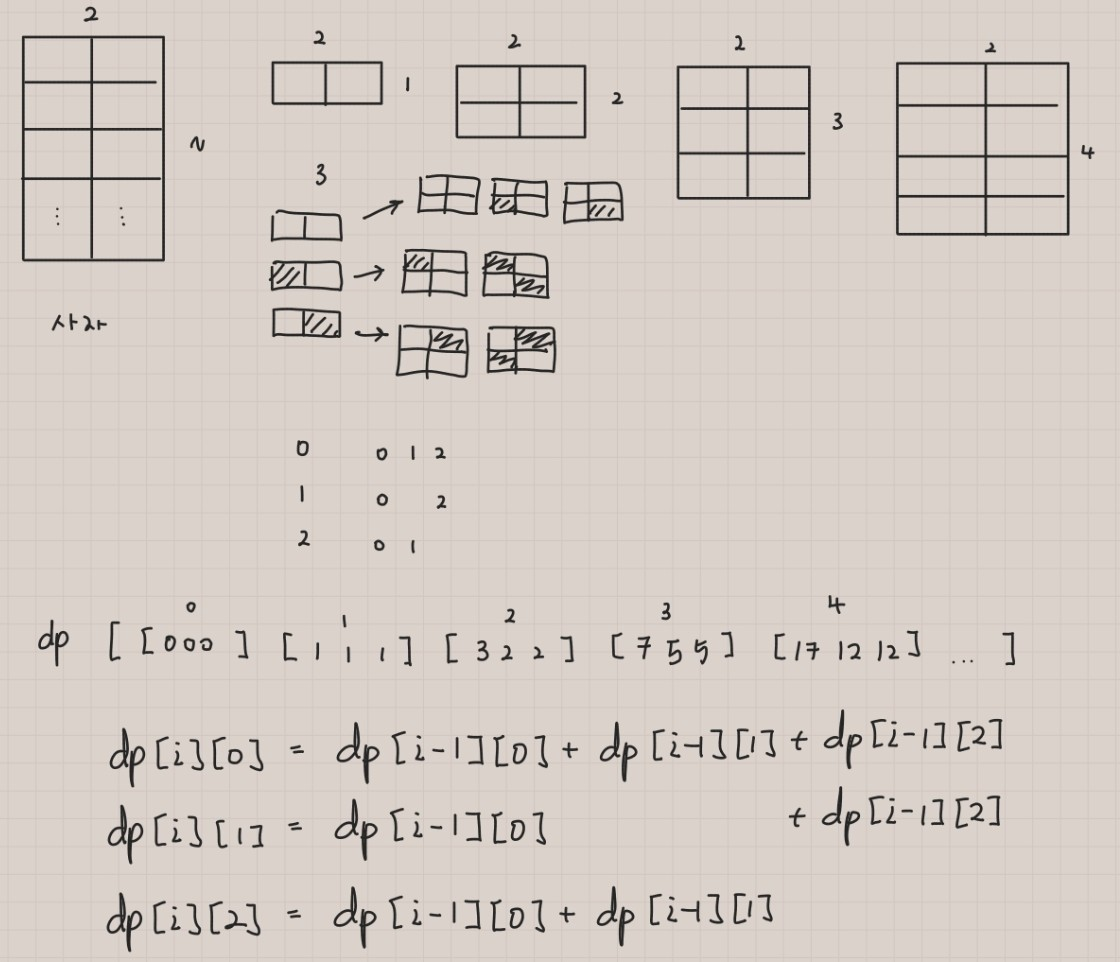 2
2 1
2 2
2 3
2 4
N
사자
3
0 0 1 2
1 0 2
2 0 1
0 1 2 3 4
dp [ [ 0 0 0 ] [ 1 1 1 ] [ 3 2 2 ] [ 7 5 5 ] [ 17 12 12 ] ... ]
dp[i][0] = dp[i-1][0] + dp[i-1][1] + dp[i-1][2]
dp[i][1] = dp[i-1][0] + dp[i-1][2]
dp[i][2] = dp[i-1][0] + dp[i-1][1]